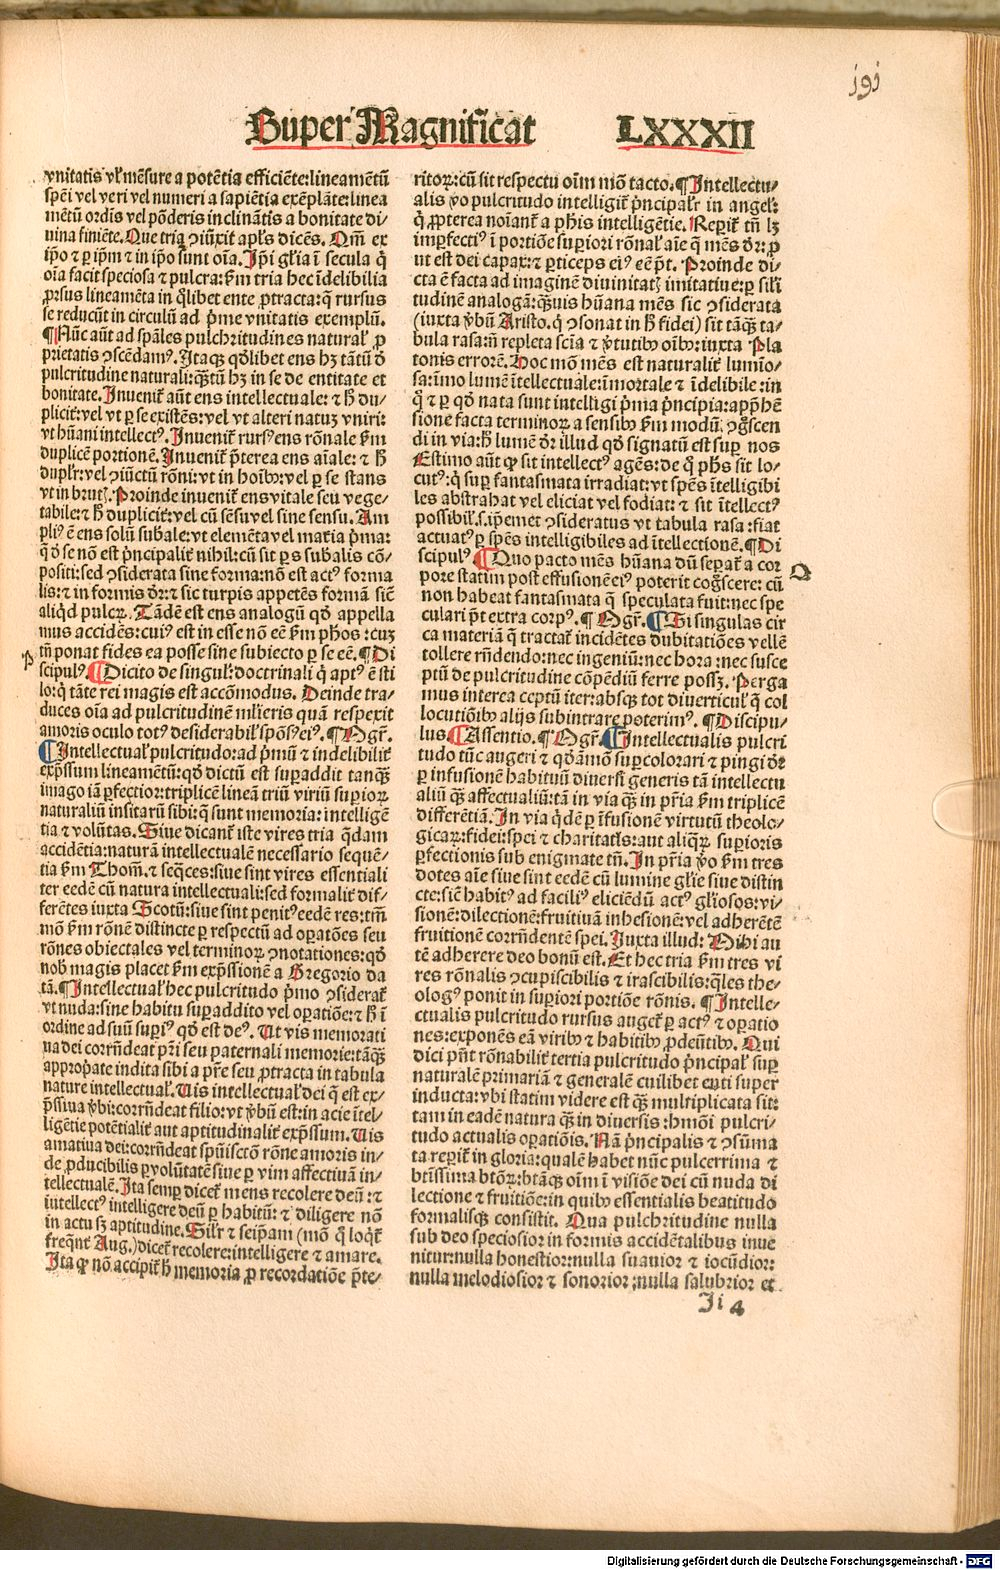 191
Super Magnificat LXXXII
vnitatis vl̓ mēsure a potētia efficiēte: lineamētū
spēi vel veri vel numeri a sapiētia exēplāte: linea
mētū ordīs vel põderis inclinātis a bonitate di-
uina finiēte. Que tria ꝯiūxit apl̓s dicēs. Qm̄ ex
ip̄o ⁊ ꝑ ip̄m ⁊ in ip̄o sunt oīa. Ip̄i gl̓ia ī secula q̇
oīa facit speciosa ⁊ pulcra: ẜm tria hec īdelibilia
ꝓrsus lineamēta in q̄libet ente ꝓtracta: q̄ rursus
se reducūt in circulū ad p̄me vnitatis exemplū.
¶ Nūc aūt ad spāles pulchritudines natural̓ ꝓ
prietatis ꝯscēdamꝰ. Itaqꝫ qd̓libet ens hꝫ tātū ꝺ
pulcritudine naturali: qꝫtū hꝫ in se de entitate et
bonitate. Inuenit̄ aūt ens intellectuale: ⁊ ħ du-
plicit̄: vel vt ꝑ se existēs: vel vt alteri natuꝫ vniri:
vt hūani intellectꝰ. Inuenit̄ rursꝰ ens rōnale ẜm
duplicē portionē. Inuenit̄ p̄terea ens aīale: ⁊ ħ
dupl̓r: vel ꝯiūctū rōni: vt in hoībꝰ: vel ꝑ se stans
vt in brutꝭ. Proinde inuenit̄ ens vitale seu vege-
tabile: ⁊ ħ duplicit̄: vel cū sēsu vel sine sensu. Am
pliꝰ ē ens solū suba̅le: vt elemēta vel maria p̄ma:
q̇ ꝺ se nō est p̄ncipalit̄ nihil: cū sit ꝑs subalis cō-
positi: sed ꝯsiderata sine forma: nō est actꝰ forma
lis: ⁊ in formis ꝺr̄: ⁊ sic turpis appetēs formā sic̄
aliqd̓ pulcꝝ. Tādē est ens analogū qd̓ appella
mus accidēs: cuiꝰ est in esse nō eē ẜm phos: cuꝫ
tn̄ ponat fides ea posse sine subiecto ꝑ se eē. ¶ Di
scipulꝰ. Dicito de singul̓: doctrinali q̇ aptꝰ ē sti
lo: q̇ tāte rei magis est accōmodus. Deinde tra-
duces oīa ad pulcritudinē ml̓ieris quā respexit
amoris oculo totꝰ desiderabil̓ spōsꝰ eiꝰ. ¶ Mgr̄.
Intellectual̓ pulcritudo: ad p̄mū ⁊ indelibilit̄
exp̄ssum lineamētū: qd̓ dictū est suꝑaddit tanqꝫ
imago iā ꝑfectior: triplicē lineā triū viriū suꝑioꝝ
naturaliū insitarū sibi: q̄ sunt memoria: intelligē
tia ⁊ volūtas. Siue dicant̄ iste vires tria q̄dam
accidētia: naturā intellectualē necessario sequē-
tia ẜm Thom̄. ⁊ seq̄ces: siue sint vires essentiali
ter eedē cū natura intellectuali: sed formalit̄ dif-
ferētes iuxta Scotū: siue sint penitꝰ eedē res: tm̄
mō ẜm rōnē distincte ꝑ respectū ad oꝑatōes seu
rōnes obiectales vel terminoꝝ ꝯnotationes: qd̓
nob̓ magis placet ẜm exp̄ssionē a Gregorio da
tā. ¶ Intellectual̓ hec pulcritudo p̄mo ꝯsiderat̄
vt nuda: sine habitu suꝑaddito vel oꝑatiōe: ⁊ ħ ī
ordine ad suū suꝑiꝰ qd̓ est deꝰ. Ut vis memorati
ua dei corrn̄deat p̄ri seu paternali memorie: tāqꝫ
appropate indita sibi a p̄re seu ꝓtracta in tabula
nature intellectual̓. Uis intellectual̓ dei q̄ est ex-
p̄ssiua v̓bi: corrn̄deat filio: vt v̓bū est: in acie ītel-
ligētie potētialit̄ aut aptitudinalit̄ exp̄ssum. Uis
amatiua dei: corrn̄deat spūiscto rōne amoris in-
de ꝓducibilis ꝑ volūtatē siue ꝑ vim affectiuā in-
tellectualē. Ita semꝑ dicet̄ mens recolere deū: ⁊
intellectꝰ intelligere deū ꝑ habitū: ⁊ diligere nō
in actu sꝫ aptitudine. Sil̓r ⁊ seip̄am (mō q̄ loqt̄
freq̄nt̄ Aug.) dicet̄ recolere: intelligere ⁊ amare.
Ita ꝙ nō accipit̄ ħ memoria ꝓ recordatiōe p̄te-
ritoꝝ: cū sit respectu oīm mō tacto. ¶ Intellectu-
alis v̓o pulcritudo intelligit̄ p̄ncipal̓r in angel̓:
q̇ ꝓpterea noīant̄ a phis intelligētie. Reꝑit̄ tn̄ lꝫ
imꝑfectiꝰ ī portiōe suꝑiori rōnal̓ aīe q̄ mēs ꝺr̄: ꝓ
ut est dei capax: ⁊ ꝑticeps eiꝰ eē p̄t. Proinde di-
cta ē facta ad imaginē diuinitatꝭ imitatiue: ꝑ sil̓i
tudinē analogā: qꝫuis hūana mēs sic ꝯsiderata
(iuxta v̓bū Aristo. q̇ ꝯsonat in ħ fidei) sit tāqꝫ ta-
bula rasa: n̄ repleta scīa ⁊ v̓tutibꝰ oībꝰ: iuxta Pla
tonis errorē. Hoc mō mēs est naturalit̄ lumīo-
sa: īmo lumē ītellectuale: īmortale ⁊ īdelibile: in
q̇ ⁊ ꝑ qd̓ nata sunt intelligi p̄ma p̄ncipia: app̄hē
sione facta terminoꝝ a sensibꝰ ẜm modū ꝯgscen
di in via: ħ lumē ꝺr̄ illud qd̓ signatū est suꝑ nos
Estimo aūt ꝙ sit intellectꝰ agēs: de q̇ phs̄ sit lo-
cutꝰ: q̇ suꝑ fantasmata irradiat: vt spēs ītelligibi
les abstrahat vel eliciat vel fodiat: ⁊ sit ītellectꝰ
possibil̓. s. ip̄emet ꝯsideratus vt tabula rasa: fiat
actuatꝰ ꝑ spēs intelligibiles ad ītellectionē. ¶ Di
scipulꝰ. Quo pacto mēs hūana dū seꝑat̄ a cor
pore statim post effusionē eiꝰ poterit cogscere: cū
non habeat fantasmata q̄ speculata fuit: nec spe
culari p̄t extra corpꝰ. ¶ Mgr̄. Si singulas cir
ca materiā q̄ tractat̄ incidētes dubitatiōes vellē
tollere rn̄dendo: nec ingeniū: nec hora: nec susce
ptū de pulcritudine cōpēdiū ferre possꝫ. Perga
mus interea ceptū iter: absqꝫ tot diuerticul̓ q̄ col
locutiōibꝰ alijs subintrare poterimꝰ. ¶ Discipu-
lus. Assentio. ¶ Mgr̄. Intellectualis pulcri
tudo tūc augeri ⁊ qd̓āmō suꝑcolorari ⁊ pingi ꝺr̄
ꝑ infusionē habituū diuersi generis tā intellectu
aliū qꝫ affectualiū: tā in via qꝫ in p̄ria ẜm triplicē
differētiā. In via q̇dē ꝑ īfusionē virtutū theolo-
gicaꝝ: fidei: spei ⁊ charitatis: aut aliqꝝ suꝑioris
ꝑfectionis sub enigmate tn̄. In p̄ria v̓o ẜm tres
dotes aīe siue sint eedē cū lumine gl̓ie siue distin
cte: sic̄ habitꝰ ad faciliꝰ eliciēdū actꝰ gl̓iosos: vi-
sionē: dilectionē: fruitiuā inhesionē: vel adherētē
fruitionē corrn̄dentē spei. Iuxta illud: Mihi au
tē adherere deo bonū est. Et hec tria ẜm tres vi
res rōnalis ꝯcupiscibilis ⁊ irascibilis: q̄les the-
ologꝰ ponit in suꝑiori portiōe rōnis. ¶ Intelle-
ctualis pulcritudo rursus auget̄ ꝑ actꝰ ⁊ oꝑatio
nes: exponēs eā viribꝰ ⁊ habitibꝰ ꝓdeūtibꝰ. Qui
dici pn̄t rōnabilit̄ tertia pulcritudo p̄ncipal̓ suꝑ
naturalē primariā ⁊ generalē cuilibet enti super
inducta: vbi statim videre est qꝫ multiplicata sit:
tam in eadē natura qꝫ in diuersis: hmōi pulcri-
tudo actualis oꝑatiōis. Nā p̄ncipalis ⁊ ꝯsūma
ta reꝑit̄ in gloria: qualē habet nūc pulcerrima ⁊
btīssima btōꝝ: btāqꝫ oīm ī visiōe dei cū nuda di
lectione ⁊ fruitiōe: in quibꝰ essentialis beatitudo
formalisqꝫ consistit. Qua pulchritudine nulla
sub deo speciosior in formis accidētalibus inue
nitur: nulla honestior: nulla suauior ⁊ iocūdior:
nulla melodiosior ⁊ sonorior: nulla salubrior et
Ii 4
P
Q
Digitalisierung gefördert durch die Deutsche Forschungsgemeinschaft - DFG